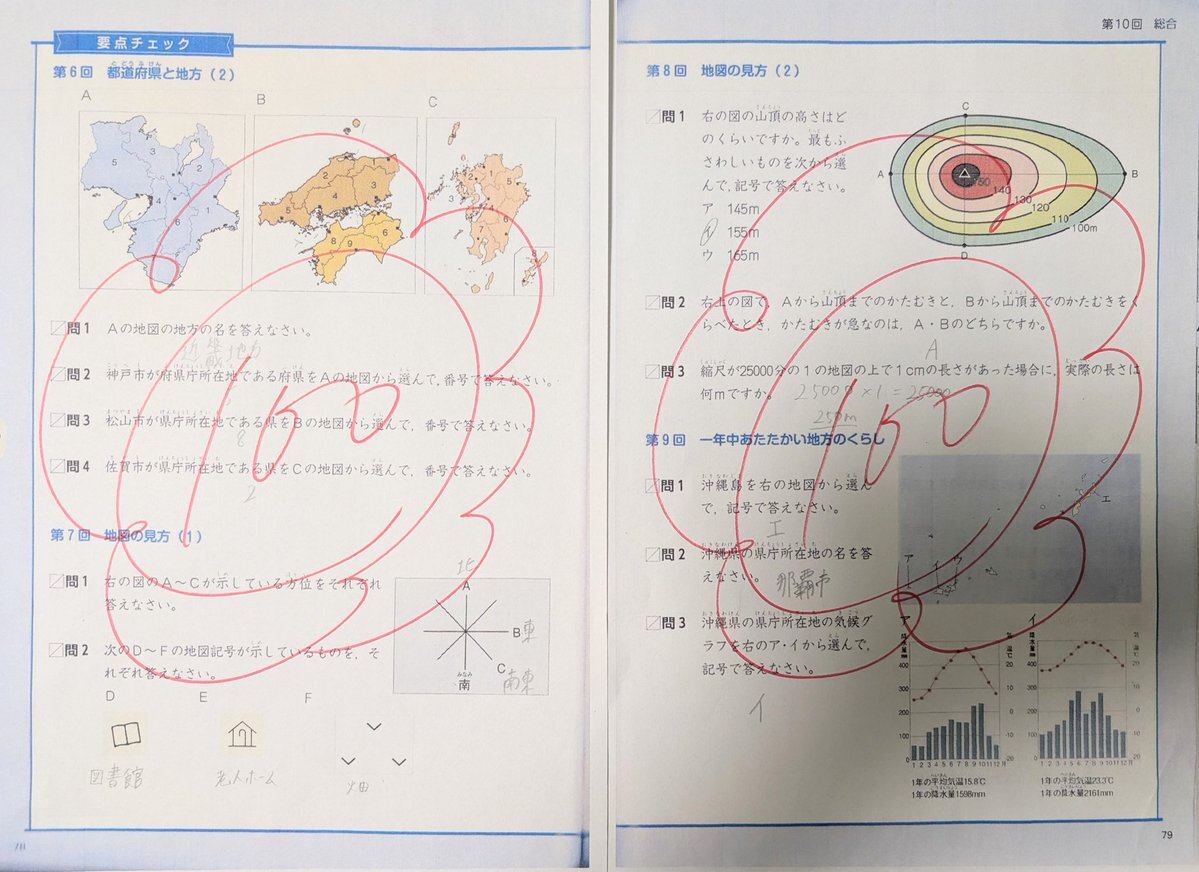 要点チェック
第6回 都道府県と地方(2)
A
B
C
5
3
2
4
1
6
2
3
4
5
8
9
6
2
1
5
3
4
6
7
8
問1 Aの地図の地方の名を答えなさい。
近畿地方
問2 神戸市が府県庁所在地である府県をAの地図から選んで,番号で答えなさい。
問3 松山市が県庁所在地である県をBの地図から選んで,番号で答えなさい。
8
問4 佐賀市が県庁所在地である県をCの地図から選んで,番号で答えなさい。
2
100
第7回 地図の見方(1)
問1 右の図のA〜Cが示している方位をそれぞれ
答えなさい。
北
A
B 東
C
南東
みなみ
南
問2 次のD〜Fの地図記号が示しているものを,そ
れぞれ答えなさい。
D
E
F
図書館
老人ホーム
畑
78
第10回 総合
第8回 地図の見方(2)
問1 右の図の山頂の高さはど
のくらいですか。最もふ
さわしいものを次から選
んで,記号で答えなさい。
ア 145m
イ 155m
ウ 165m
C
A
B
D
150
140
130
120
110
100m
問2 右上の図で,Aから山頂までのかたむきと,Bから山頂までのかたむきをく
らべたとき,かたむきが急なのは,A・Bのどちらですか。
A
問3 縮尺が25000分の1の地図の上で1cmの長さがあった場合に,実際の長さは
何mですか。 25000×1=25000
250m
100
第9回 一年中あたたかい地方のくらし
問1 沖縄島を右の地図から選ん
で,記号で答えなさい。
エ
エ
ア
イ
ウ
問2 沖縄県の県庁所在地の名を答
えなさい。
那覇市
問3 沖縄県の県庁所在地の気候グ
ラフを右のア・イから選んで,
記号で答えなさい。
イ
ア
降水量
mm
気温
℃
400
300
200
100
0
20
10
0
10
20
1 2 3 4 5 6 7 8 9 10 11 12月
1年の平均気温15.8℃
1年の降水量1598mm
イ
降水量
mm
気温
℃
400
300
200
100
0
20
10
0
10
20
1 2 3 4 5 6 7 8 9 10 11 12月
1年の平均気温23.3℃
1年の降水量2161mm
79